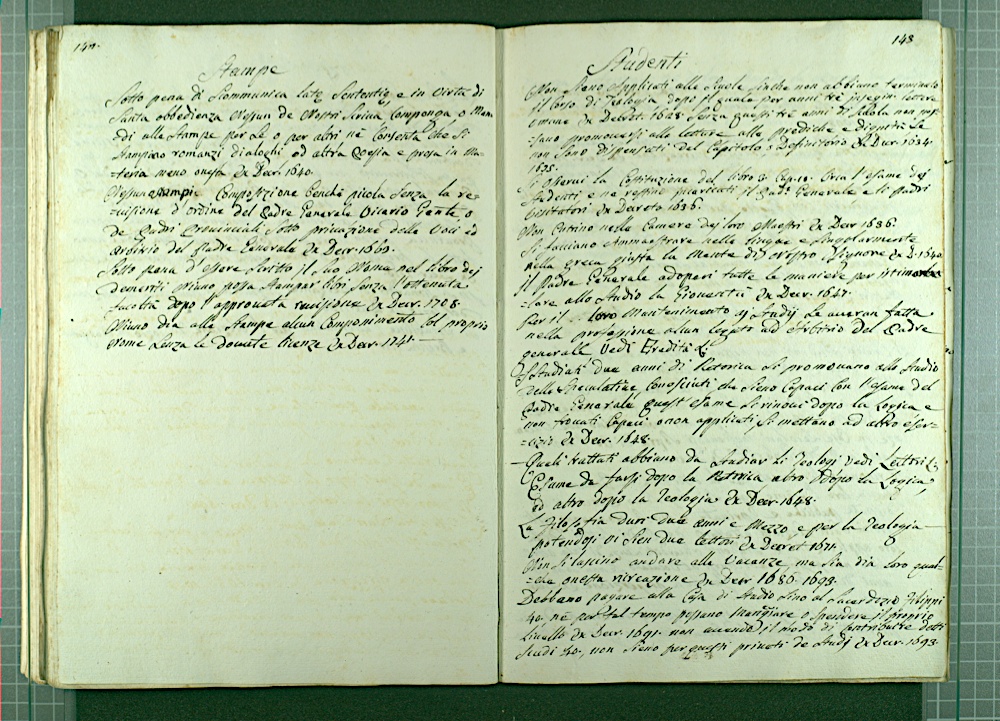 Stampe
Sotto pena di Scommunica latæ Sententiæ e in Virtù di
Santa obbedienza Nessun de Nostri Scriva Componga o Man
di alle Stampe per se o per altri nè Consenta che Si
Stampino romanzi dialoghi od altra Poesia e prosa in Ma=
=teria meno onesta Ex Decr. 1640.
Nessun Stampi Composizione benchè picola Senza la re=
=visione d'ordine del Padre Generale Vicario Gnãle o
de Padri Provinciali Sotto privazione delle Voci ed
arbitrio del Padre Generale Ex Decr. 1663.
Sotto pena d'essere Scritto il suo Nome nel libro dej
demeriti niuno possa Stampar libri Senza l'ottenuta
facoltà dopo l'approvata revisione Ex Decr. 1708.
Niuno dia alle Stampe alcun Componimento Col proprio
Nome Senza le dovute licenze Ex Decr. 1741.
148
Studenti
Non Sieno Applicati alle Scuole finchè non abbiano terminato
il Corso di Teologia dopo il quale per anni tre insegni lettere
umane Ex Decret. 1648. Senza questi tre anni di Scola non pos=
=sano promoversi alle letture alle prediche e dignità Se
non Sono dispensati dal Capitolo, o Definitorio Ex Decr. 1634.
1635.
Si Osservi la Costituzione del libro 3 Cap. 10. Circa l'esame dej
Studenti e ne restino incaricati il Pad. Generale e li Padri
Visitatori Ex Decreto 1636.
Non Entrino nelle Camere dej loro Maestri Ex Decr. 1636.
Si facciano Ammaestrare nelle lingue e Singolarmente
nella greca giusta la Mente di Nostro Signore Ex D. 1640
Il Padre Generale adoperi tutte le maniere per
=lare allo Studio la Gioventù Ex Decr. 1647.
Per il loro Mantenimento aj Studij Se avran fatta
nella professione alcun legato ad Arbitrio del Padre
generale Vedi Eredità
Studiati due anni di Retorica Si promovano allo Studio
delle Speculative Conosciuti che Sieno Capaci Con l'esame del
Padre Generale quest'esame Si rinovi dopo la Logica e
non trovati Capaci o non applicati Si mettano ad altro eser=
=cizio Ex Decr. 1648.
Quali trattati abbiano da Studiar li Teologi Vedi Lettori
Esame da farsi dopo la Retorica altro dopo la Logica,
ed altro dopo la Teologia Ex Decr. 1648.
La Filosofia duri due anni e Mezzo e per la Teologia
potendosi vi Sien due Lettori Ex Decret 1671.
Non Si lascino andare alle Vacanze, ma Sia dia loro qual=
=che onesta ricreazione Ex Decr 1686. 1693.
Debbano pagare alla Casa di Studio Sino al Sacerdozio Filippi
40. nè per tal tempo possano mangiare o Spendere il proprio
livello Ex Decr. 1691. non avendo il modo di Contribuire detti
Scudi 40., non Sieno per questi privati de Studj Ex Decr. 1693.